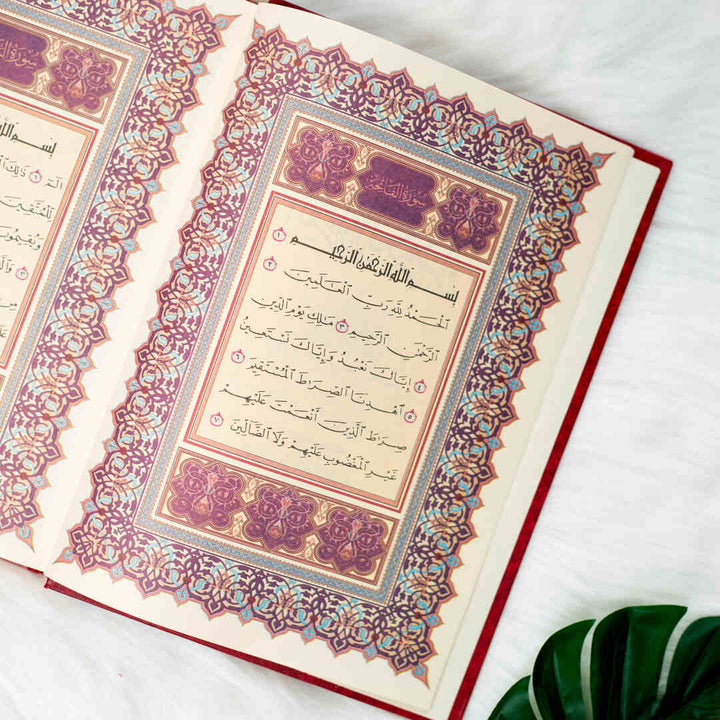 سُورَةُ ٱلْفَاتِحَةِ
بِسْمِ ٱللَّهِ ٱلرَّحْمَٰنِ ٱلرَّحِيمِ ١
ٱلْحَمْدُ لِلَّهِ رَبِّ ٱلْعَٰلَمِينَ ٢
ٱلرَّحْمَٰنِ ٱلرَّحِيمِ ٣ مَٰلِكِ يَوْمِ ٱلدِّينِ
٤ إِيَّاكَ نَعْبُدُ وَإِيَّاكَ نَسْتَعِينُ
٥ ٱهْدِنَا ٱلصِّرَٰطَ ٱلْمُسْتَقِيمَ ٦
صِرَٰطَ ٱلَّذِينَ أَنْعَمْتَ عَلَيْهِمْ
غَيْرِ ٱلْمَغْضُوبِ عَلَيْهِمْ وَلَا ٱلضَّآلِّينَ ٧
سُورَةُ
بِسْمِ ٱللَّهِ
الٓمٓ ١ ذَٰلِكَ
لِّلْمُتَّقِينَ
وَيُقِيمُونَ